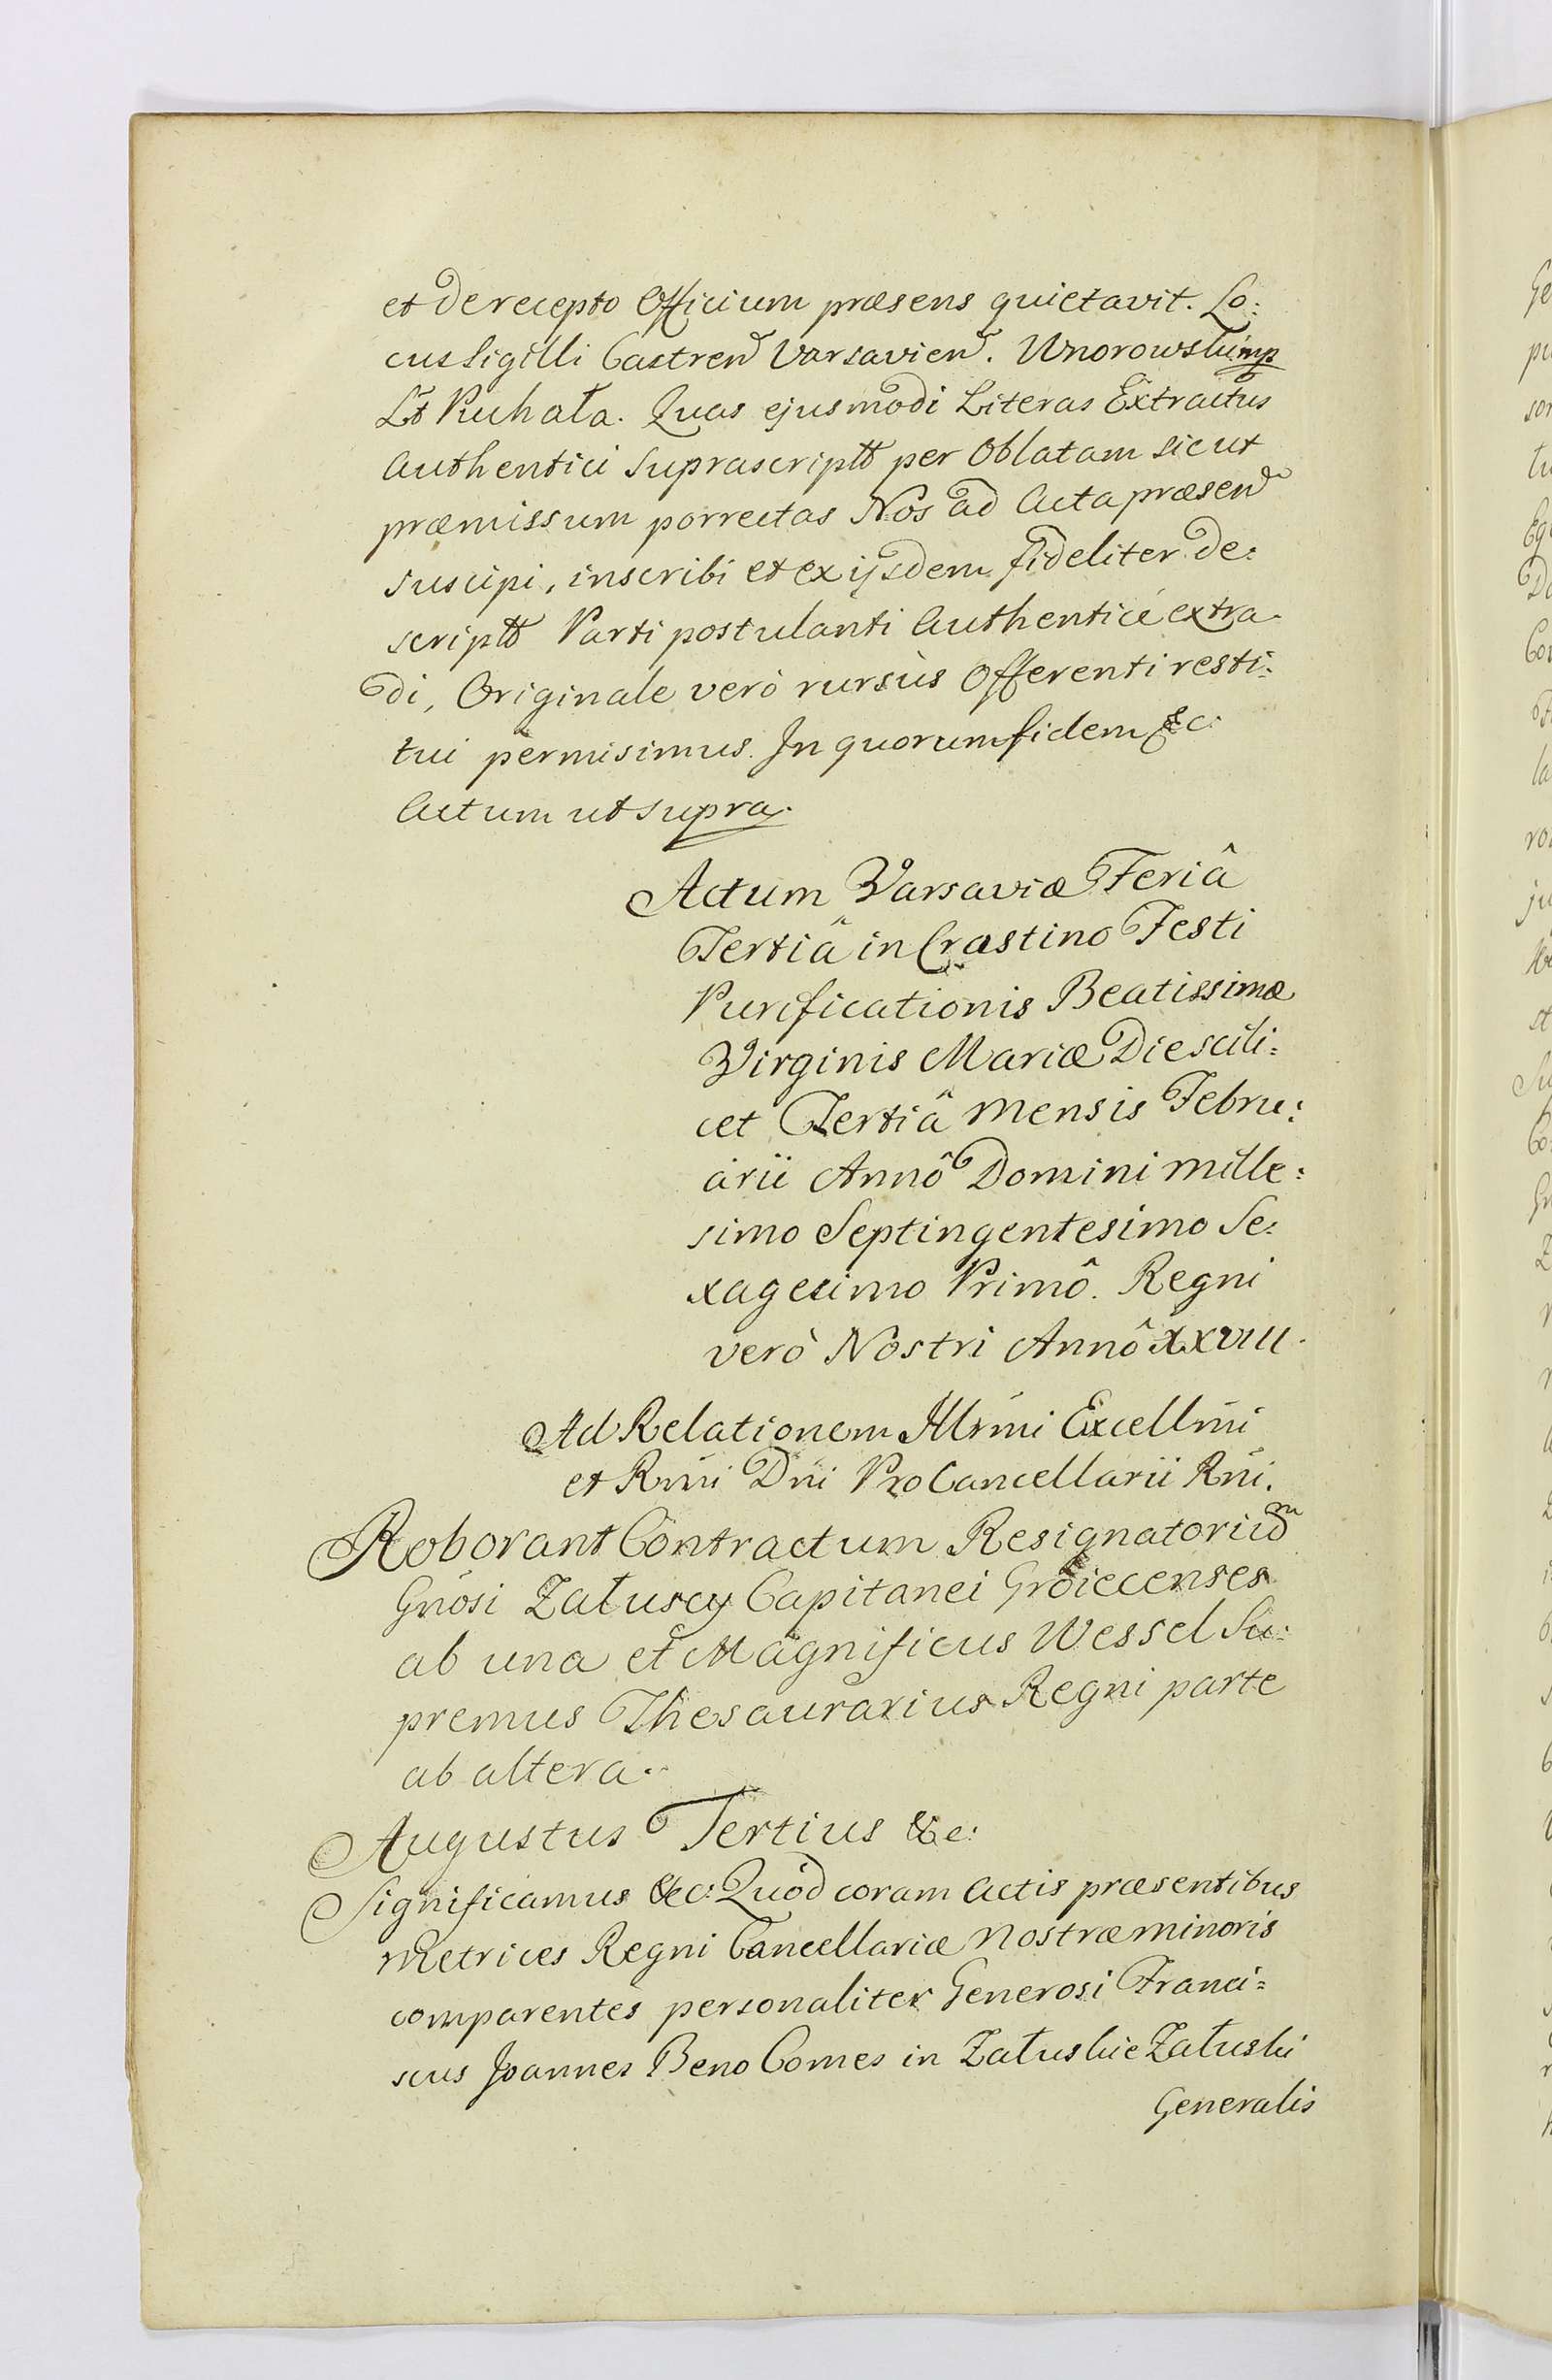 et de recepto Officium præsens quietavit. Lo:
cus Sigilli Castren Varsavien. Unorowski mp
Lt Puchała. Quas ejusmodi Literas Extractus
Authentici suprascriptt per Oblatam sicut
præmissum porrectas Nos ad Acta præsen
suscipi, inscribi et ex ijsdem fideliter de:
scriptt Parti postulanti Authenticè extra
di, Originale verò rursùs Offerenti resti:
tui permisimus. In quorum fidem &c:
Actum ut supra.
Actum Varsaviæ Feriâ
Tertiâ in Crastino Festi
Purificationis Beatissimæ
Virginis Mariæ Die scili:
cet Tertiâ Mensis Febru:
arii Annô Domini Mille:
simo Septingentesimo Se:
xagesimo Primô. Regni
verò Nostri Annô XXVIII.
Ad Relationem Illrmi Excellmi
et Rmi Dni ProCancellarii Rni.
Roborant Contractum Resignatoriũ
Gnosi Załuscy Capitanei Groiecenses
ab una et Magnificus Wessel Su:
premus Thesaurarius Regni parte
ab altera.
Augustus Tertius &c:
Significamus &c: Quòd coram Actis præsentibus
Metrices Regni Cancellariæ Nostræ Minoris
comparentes personaliter Generosi Franci=
scus Joannes Beno Comes in Załuskie Załuski
Generalis